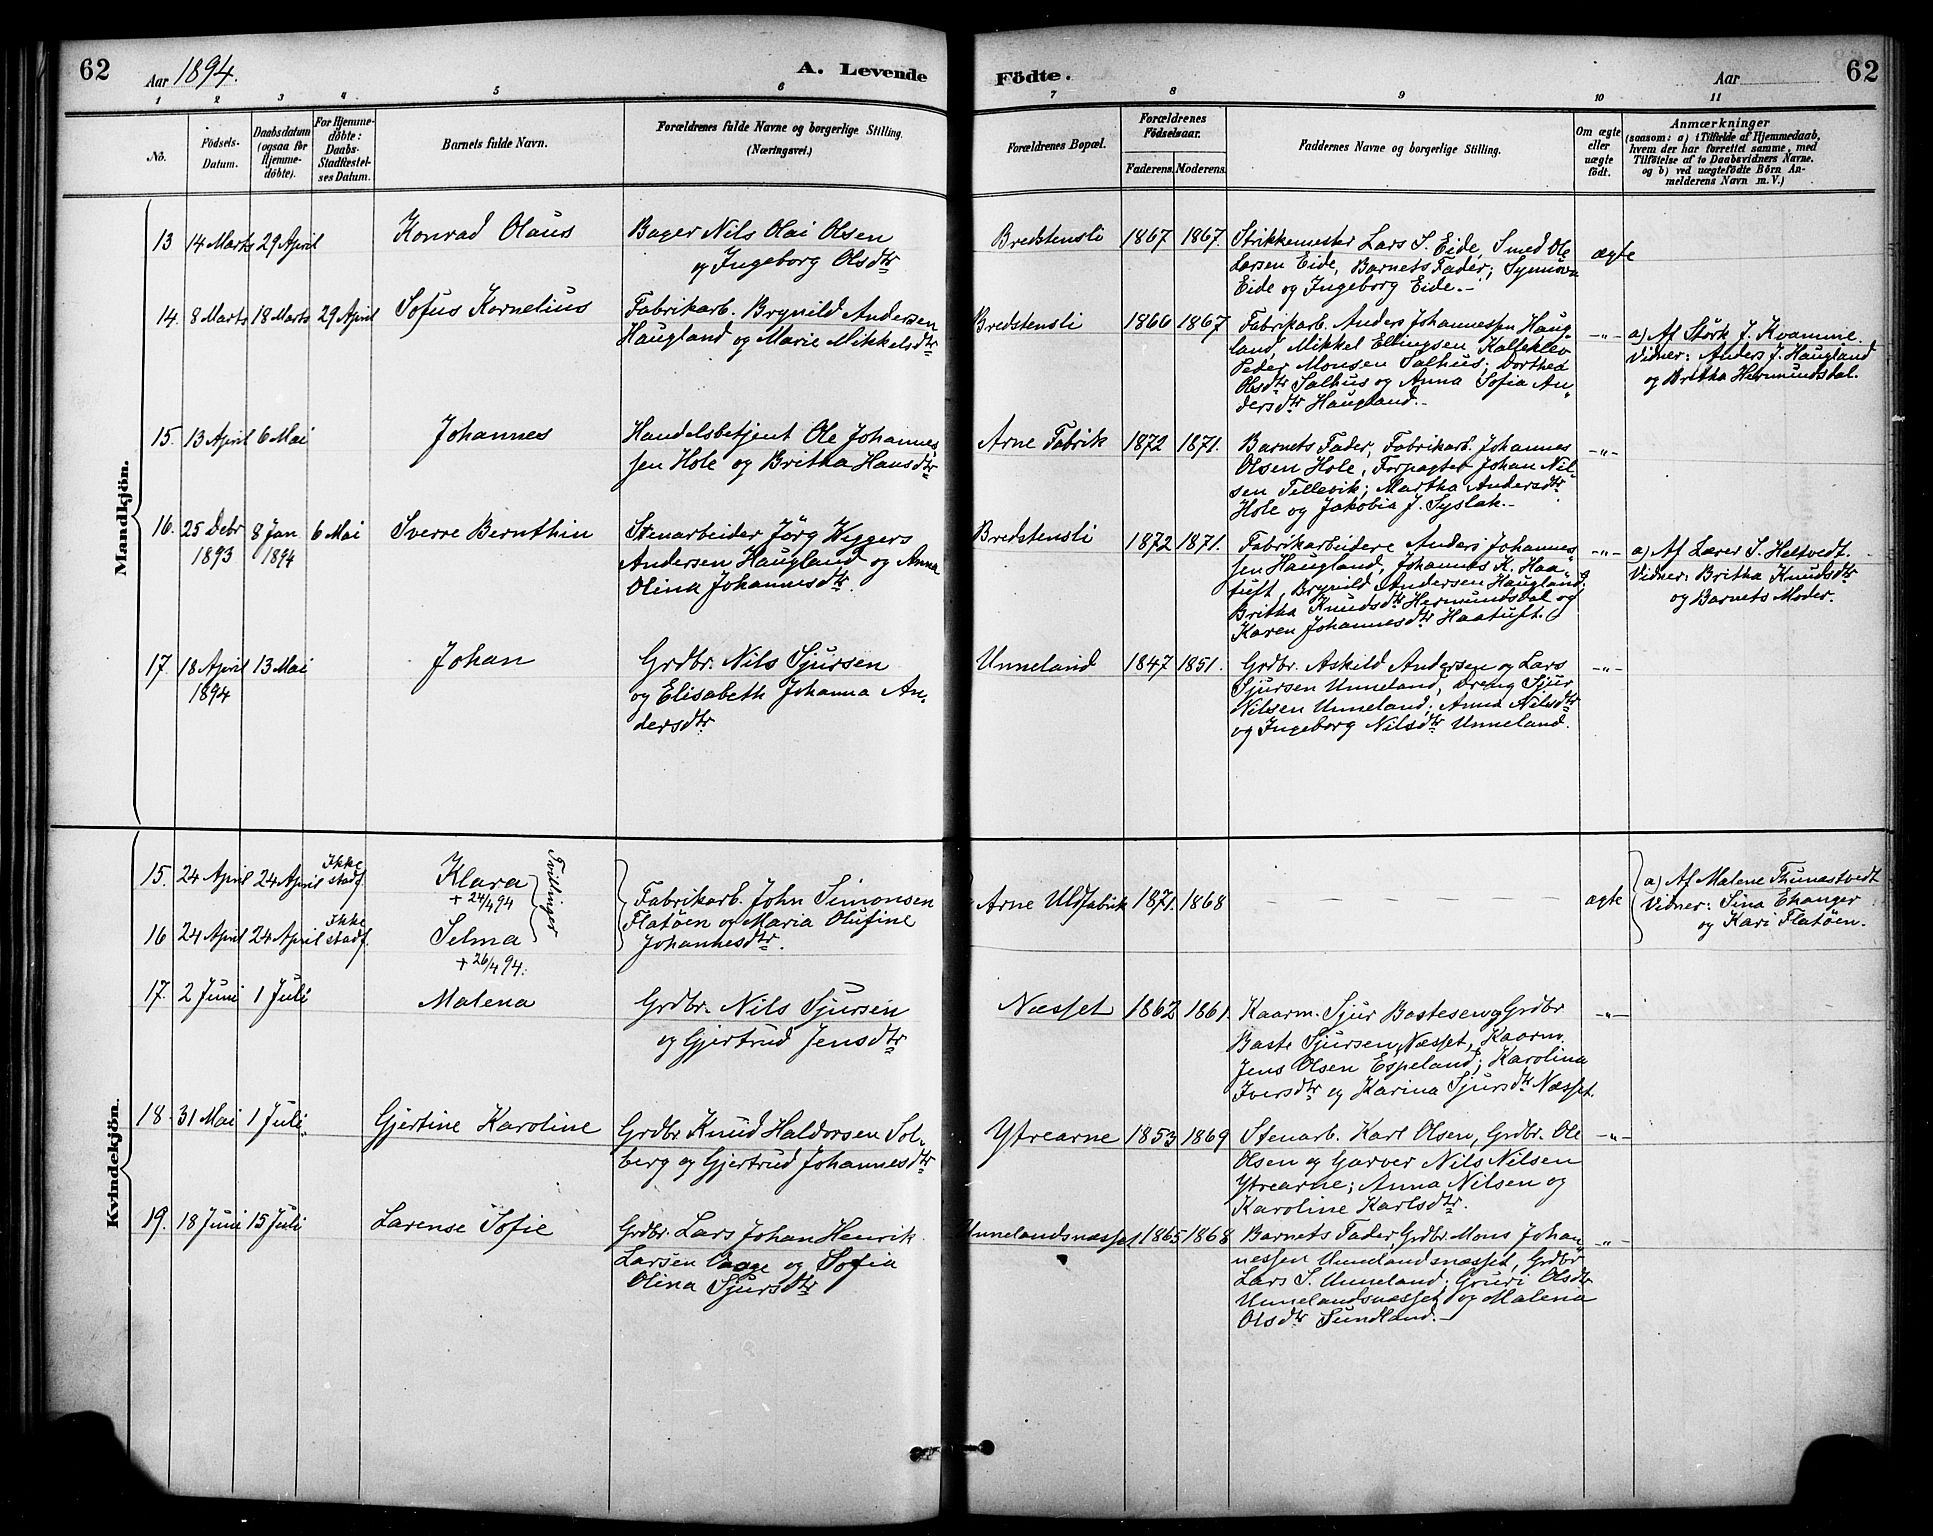 62
Aar 1894.
A. Levende
Födte.
Aar
62
1 2 3 4 5 6 7 8 9 10 11
No.
Födsels-
Datum.
Daabsdatum
(ogsaa for
Hjemme-
döbte).
For Hjemme-
döbte:
Daabs-
Stadfæstel-
ses Datum.
Barnets fulde Navn.
Forældrenes fulde Navne og borgerlige Stilling.
(Næringsvei.)
Forældrenes Bopæl.
Forældrenes
Födselsaar.
Faderens. Moderens.
Faddernes Navne og borgerlige Stilling.
Om ægte
eller
uægte
födt.
Anmærkninger
(saasom: a) i Tilfælde af Hjemmedaab,
hvem der har forrettet samme, med
Tilföielse af to Daabsvidners Navne.
og b) ved uægtefödte Börn An-
melderens Navn m. V.)
Mandkjön.
13 14 Marts 29 April
Konrad Olaus
Bager Nils Olai Olsen
og Ingeborg Olsdtr
Bredstensli 1867 1867.
Strikkemester Lars S. Eide, Smed Ole
Larsen Eide, Barnets Fader; Synnøva
Eide og Ingeborg Eide.-
ægte
14. 8 Marts 18 Marts 29 April
Sofus Kornelius
Fabrikarb. Brynild Andersen
Haugland og Marie Mikkelsdtr
Bredstensli 1866 1867
Fabrikarb. Anders Johannessen Haug-
land, Mikkel Ellingsen Kalleklev
Peder Monsen Salhus; Dorthea
Olsdtr Salhus og Anna Sofia An-
dersdtr Haugland.-
-"-
a) Af Størk J. Kvamme.
Vidner: Anders J. Haugland
og Britha Hermundsdal.
15. 13 April 6 Mai
Johannes
Handelsbetjent Ole Johannes-
sen Hole og Britha Hansdtr
Arne Fabrik 1872 1871.
Barnets Fader, Fabrikarb. Johannes
Olsen Hole, Forpagter Johan Nil-
sen Tellevik; Martha Andersdtr
Hole og Jakobia J. Syslak.-
-"-
16. 25 Debr 8 Jan 6 Mai
1893 1894
Sverre Bernthin
Stenarbeider Jörg Wiggers
Andersen Haugland og Anna
Olina Johannesdtr.
Bredstensli 1872 1871.
Fabrikarbeidere Anders Johannes-
sen Haugland, Johannes K. Haa-
tuft, Brynild Andersen Haugland;
Britha Knudsdtr Hermundsdal og
Karen Johannesdtr Haatuft.
-"-
a) Af Lærer S. Heltvedt.
Vidner: Britha Knudsdtr
og Barnets Moder.
17. 18 April 13 Mai
1894
Johan
Grdbr. Nils Sjursen
og Elisabeth Johanna An-
dersdtr
Unneland 1847 1851.
Grdbr. Askild Andersen og Lars
Sjursen Unneland, Dreng Sjur
Nilsen Unneland; Anna Nilsdtr
og Ingeborg Nilsdtr Unneland.
-"-
Kvindekjön.
15. 24 April 24 April Ikke
stadf.
Klara
+ 24/4 94
Tvillinger
Fabrikarb. John Simonsen
Flatøen og Maria Olufine
Johannesdtr.
Arne Uldfabrik 1871. 1868
ægte
a) Af Malene Thunestvedt
Vidner: Sina Ekanger
og Kari Flatøen.
16 24 April 24 April Ikke
stadf.
Selma
+ 26/4 94.
17. 2 Juni 1 Juli
Malena
Grdbr. Nils Sjursen
og Gjertrud Jensdtr
Næsset 1862 1861.
Kaarm. Sjur Bastesen og Grdbr
Baste Sjursen, Næsset, Kaarm.
Jens Olsen Espeland; Karolina
Iversdtr og Karina Sjursdtr Næsset.
-"-
18. 31 Mai 1 Juli.
Gjertine Karoline
Grdbr. Knud Haldorsen Sol-
berg og Gjertrud Johannesdtr
Ytrearne 1853 1869
Stenarb. Karl Olsen, Grdbr. Ole
Olsen og Garver Nils Nilsen
Ytrearne; Anna Nilsen og
Karoline Karlsdtr.
-"-
19. 18 Juni 15 Juli
Larense Sofie
Grdbr. Lars Johan Henrik
Larsen Vaage og Sofia
Olina Sjursdtr
Unnelandsnæsset 1865 1868
Barnets Fader, Grdbr. Mons Johan-
nessen Unnelandsnæsset, Grdbr
Lars S. Unneland; Gruri Olsdtr
Unnelandsnæsset og Malena
Olsdtr Sundland.-
-"-